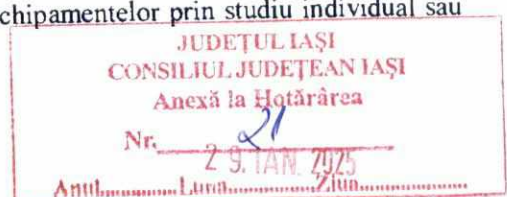 chipamentelor prin studiu individual sau
JUDEŢUL IAŞI
CONSILIUL JUDEŢEAN IAŞI
Anexă la Hotărârea
Nr. 21
29. IAN. 2025
Anul............Luna............Ziua............